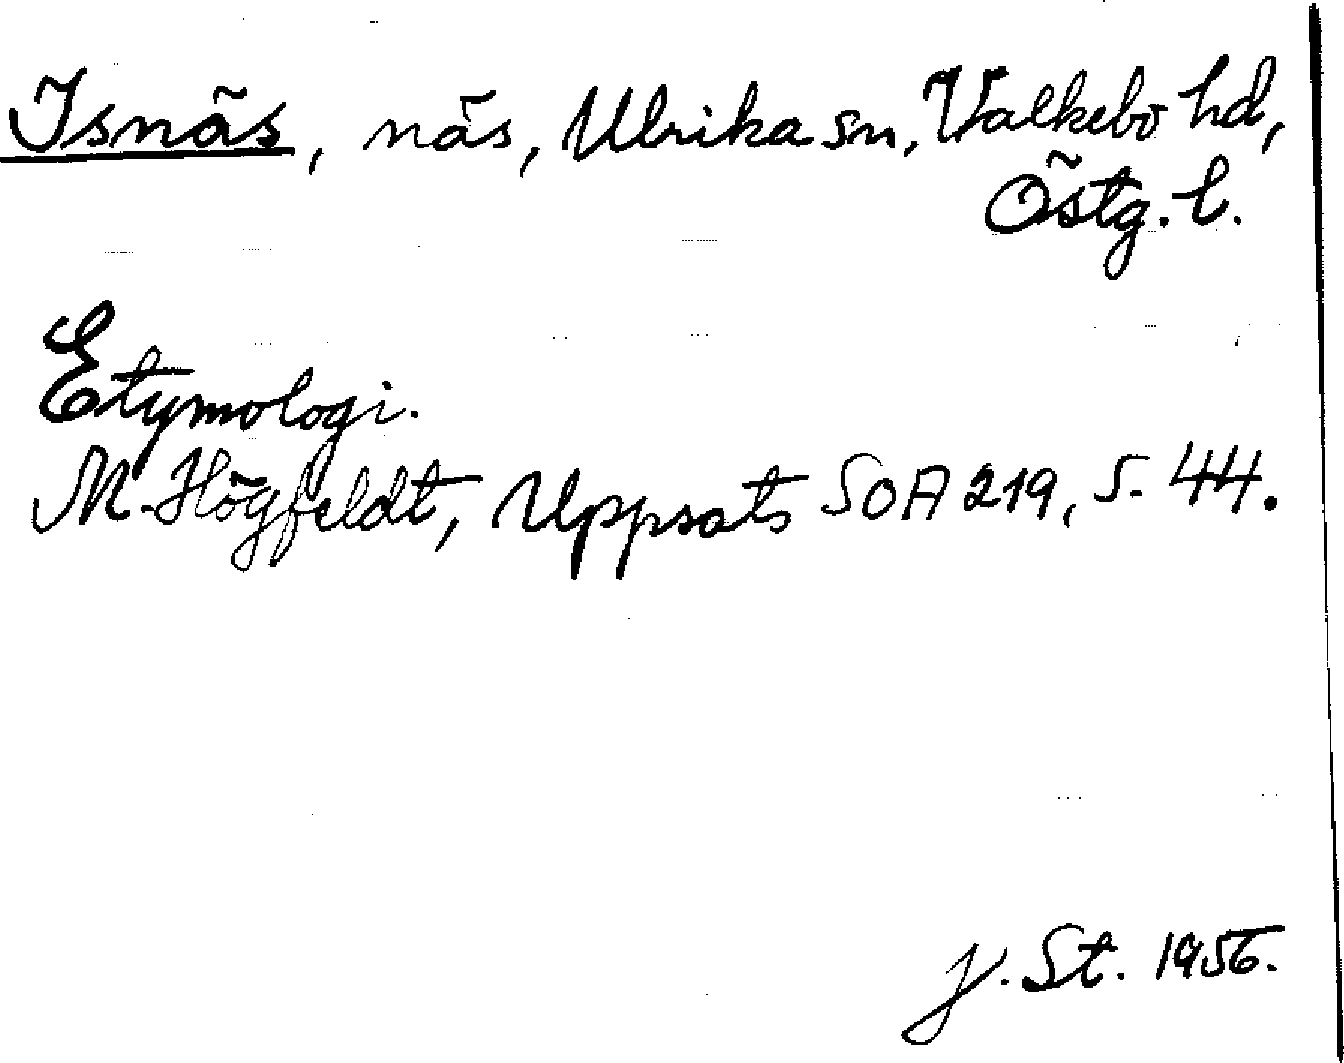 Isnäs, näs, Ulrika sn, Valkebo hd,
Östg. l.
Etymologi.
M. Högfeldt, Uppsats SOA 219, s. 44.
J. St. 1956.